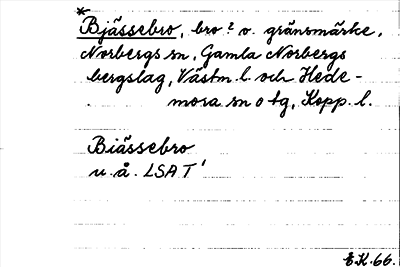 *
Bjässebro, bro? o. gränsmärke,
Norbergs sn, Gamla Norbergs
bergslag, Västm. l. och Hede-
mora sn o tg, Kopp. l.
Biässebro
u. å. LSA T'
E.K. 66.